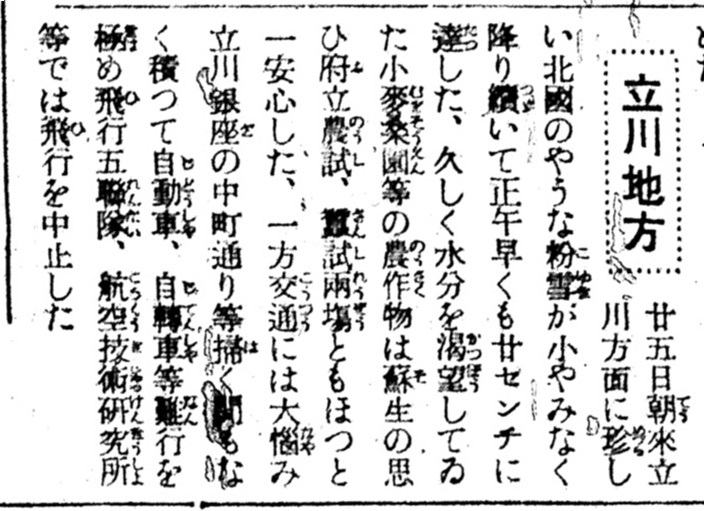 立川地方
廿五日朝來立
川方面に珍し
い北國のやうな粉雪が小やみなく
降り續いて正午早くも廿センチに
達した、久しく水分を渇望してゐ
た小麥桑園等の農作物は蘇生の思
ひ府立農試、蠶試兩場ともほつと
一安心した、一方交通には大惱み
立川銀座の中町通り等掃く間もな
く積つて自動車、自轉車等難行を
極め飛行五聯隊、航空技術研究所
等では飛行を中止した